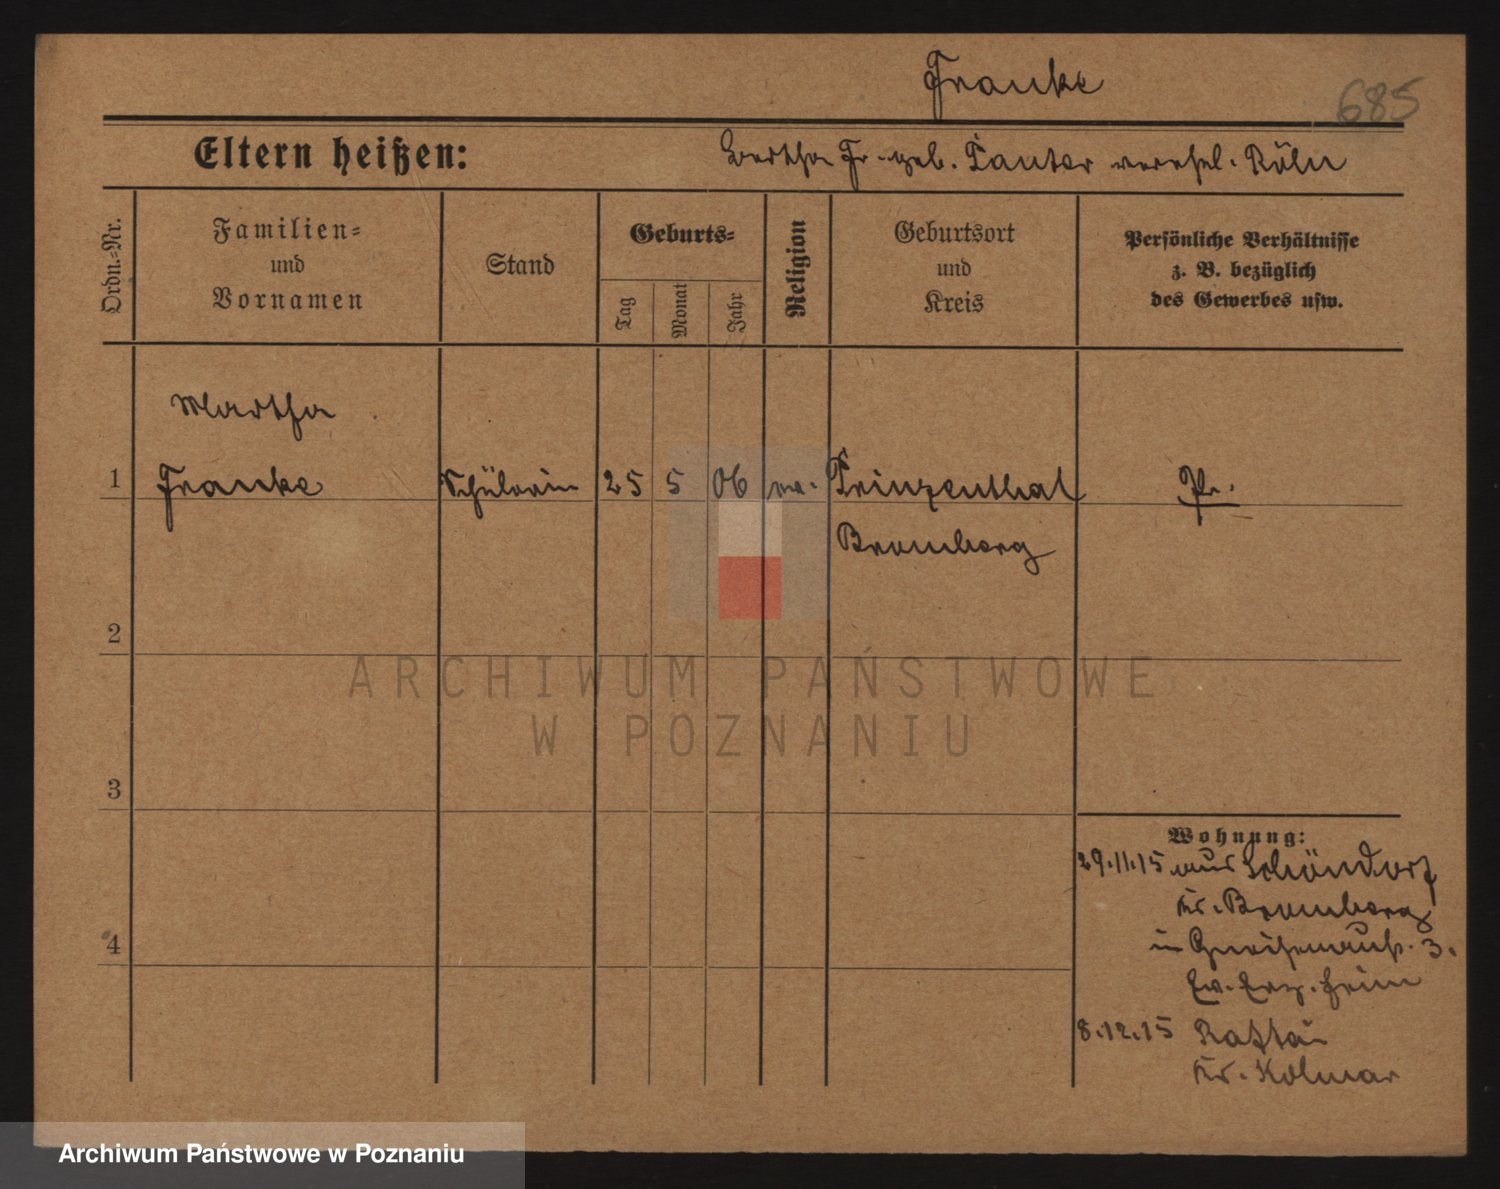 Franke
685
Eltern heißen:
Bertha Fr. geb. Panter verehel. Köln
Ordn.-Nr.
Familien-
und
Vornamen
Stand
Geburts-
Tag
Monat
Jahr
Religion
Geburtsort
und
Kreis
Persönliche Verhältnisse
z. B. bezüglich
des Gewerbes usw.
Martha
1 Franke Schülerin 25 5 06 ev. Prinzenthal Pr.
Bromberg
2
3
4
Wohnung:
29.11.15 aus Schöndorf
Kr. Bromberg
in Gneisenaustr. 3.
Ev. Erz. heim
8.12.15 Rattai
Kr. Kolmar
ARCHIWUM PAŃSTWOWE
W POZNANIU
Archiwum Państwowe w Poznaniu